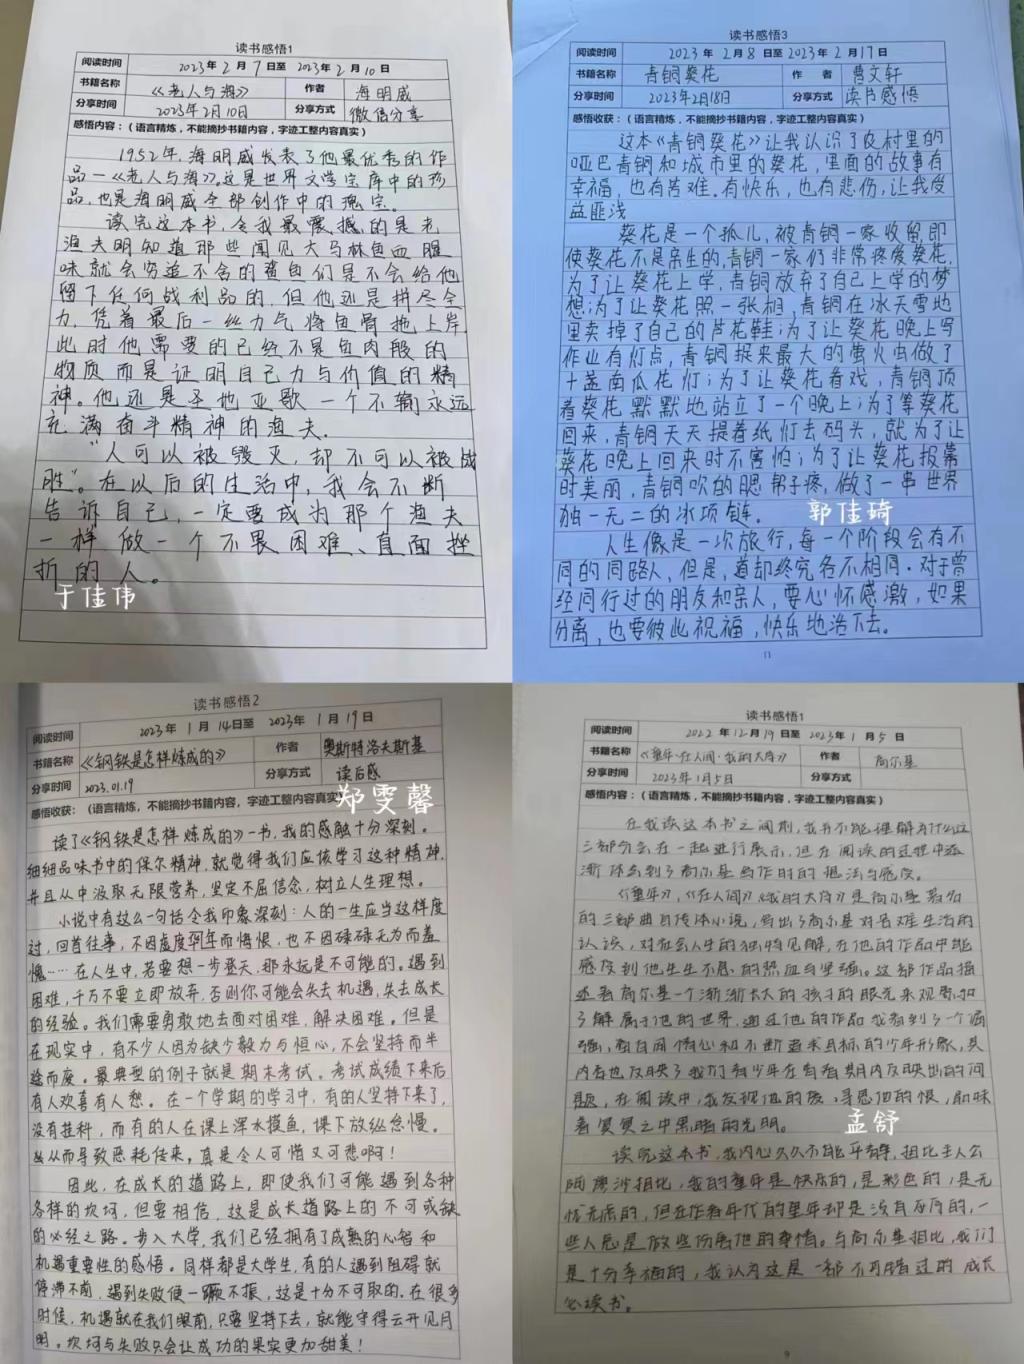 读书感悟1
阅读时间 2023年2月7日至 2023年2月10日
书籍名称 《老人与海》 作者 海明威
分享时间 2023年2月10日 分享方式 微信分享
感悟内容：（语言精炼，不能摘抄书籍内容，字迹工整内容真实）
1952年，海明威发表了他最优秀的作
品—《老人与海》。这是世界文学宝库中的珍
品，也是海明威全部创作中的瑰宗。
读完这本书，令我最震撼的是老
渔夫明知道那些闻见大马林鱼血腥
味就会穷追不舍的鲨鱼们是不会给他
留下任何战利品的，但他还是拼尽全
力，凭着最后一丝力气将鱼骨拖上岸，
此时他需要的已经不是鱼肉般的
物质而是证明自己力与价值的精
神。他还是圣地亚歌一个不输永远
充满奋斗精神的渔夫。
"人可以被毁灭，却不可以被战
胜"。在以后的生活中，我会不断
告诉自己，一定要成为那个渔夫
一样做一个不畏困难、直面挫
折的人。
于佳伟
读书感悟3
阅读时间 2023年2月8日至2023年2月17日
书籍名称 青铜葵花 作者 曹文轩
分享时间 2023年2月18日 分享方式 读书感悟
感悟收获：（语言精炼，不能摘抄书籍内容，字迹工整内容真实）
这本《青铜葵花》让我认识了农村里的
哑巴青铜和城市里的葵花，里面的故事有
幸福，也有苦难。有快乐，也有悲伤，让我受
益匪浅
葵花是一个孤儿，被青铜一家收留，即
使葵花不是亲生的，青铜一家仍非常疼爱葵花，
为了让葵花上学，青铜放弃了自己上学的梦
想；为了让葵花照一张相，青铜在冰天雪地
里卖掉了自己的芦花鞋；为了让葵花晚上写
作业有灯点，青铜捉来最大的萤火虫做了
十盏南瓜花灯；为了让葵花看戏，青铜顶
着葵花默默地站立了一个晚上；为了等葵花
回来，青铜天天提着纸灯去码头，就为了让
葵花晚上回来时不害怕；为了让葵花报幕
时美丽，青铜吹的腮帮子疼，做了一串世界
独一无二的冰项链。
郭佳琦
人生像是一次旅行，每一个阶段会有不
同的同路人，但是，道却终究各不相同。对于曾
经同行过的朋友和亲人，要心怀感激，如果
分离，也要彼此祝福，快乐地活下去。
11
读书感悟2
阅读时间 2023年1月14日至 2023年1月19日
书籍名称 《钢铁是怎样炼成的》 作者 奥斯特洛夫斯基
分享时间 2023.01.19 分享方式 读后感
郑雯馨
感悟收获：（语言精炼，不能摘抄书籍内容，字迹工整内容真实）
读了《钢铁是怎样炼成的》一书，我的感触十分深刻。
细细品味书中的保尔精神，就觉得我们应该学习这种精神，
并且从中汲取无限营养，坚定不屈信念，树立人生理想。
小说中有这么一句话令我印象深刻：人的一生应当这样度
过，回首往事，不因虚度年而悔恨，也不因碌碌无为而羞
愧……在人生中，若要想一步登天，那永远是不可能的。遇到
困难，千万不要立即放弃，否则你可能会失去机遇，失去成长
的经验。我们需要勇敢地去面对困难，解决困难。但是
在现实中，有不少人因为缺少毅力与恒心，不会坚持而半
途而废。最典型的例子就是期末考试。考试成绩下来后
有人欢喜有人愁。在一个学期的学习中，有的人坚持下来了，
没有挂科，而有的人在课上浑水摸鱼，课下放纵怠慢。
从而导致恶耗传来，真是令人可惜又可悲啊！
因此，在成长的道路上，即使我们可能遇到各种
各样的坎坷，但要相信，这是成长道路上的不可或缺
的必经之路。步入大学，我们已经拥有了成熟的心智和
机遇重要性的感悟。同样都是大学生，有的人遇到阻碍就
停滞不前，遇到失败便一蹶不振，这是十分不可取的。在很多
时候，机遇就在我们眼前，只要坚持下去，就能守得云开见月
明。坎坷与失败只会让成功的果实更加甜美！
读书感悟1
阅读时间 2022年12月19日至 2023年1月5日
书籍名称 《童年·在人间·我的大学》 作者 高尔基
分享时间 2023年1月5日 分享方式
感悟内容：（语言精炼，不能摘抄书籍内容，字迹工整内容真实）
在我读这本书之前，我并不能理解为什么这
三部分会在一起进行展示，但在阅读的过程中逐
渐体会到了高尔基写作时的想法与感度。
《童年》，《在人间》《我的大学》是高尔基著名
的三部曲自传体小说，写出了高尔基对苦难生活的
认识，对社会人生的独特见解，在他的作品中能
感受到他生生不息的热血与坚强。这部作品描
述着高尔基一个渐渐长大的孩子的眼光来观察和
了解属于他的世界，通过他的作品我看到了一个倔
强、富有同情心和不断追求目标的少年形象，其
内容也反映了我们青少年在青春期内反映出的问
题，在阅读中，我发现他的爱，寻觅他的恨，品味
着冥冥之中黑暗的光明。
孟舒
读完这本书，我内心久久不能平静，相比主人公
阿廖沙相比，我的童年是快乐的，是彩色的，是无
忧无虑的，但在作者年代的童年却是没有灰尽的，一
些人总是做些伤害他的事情。与高尔基相比，我们
是十分幸福的，我认为这是一部不可错过的成长
必读书。
9